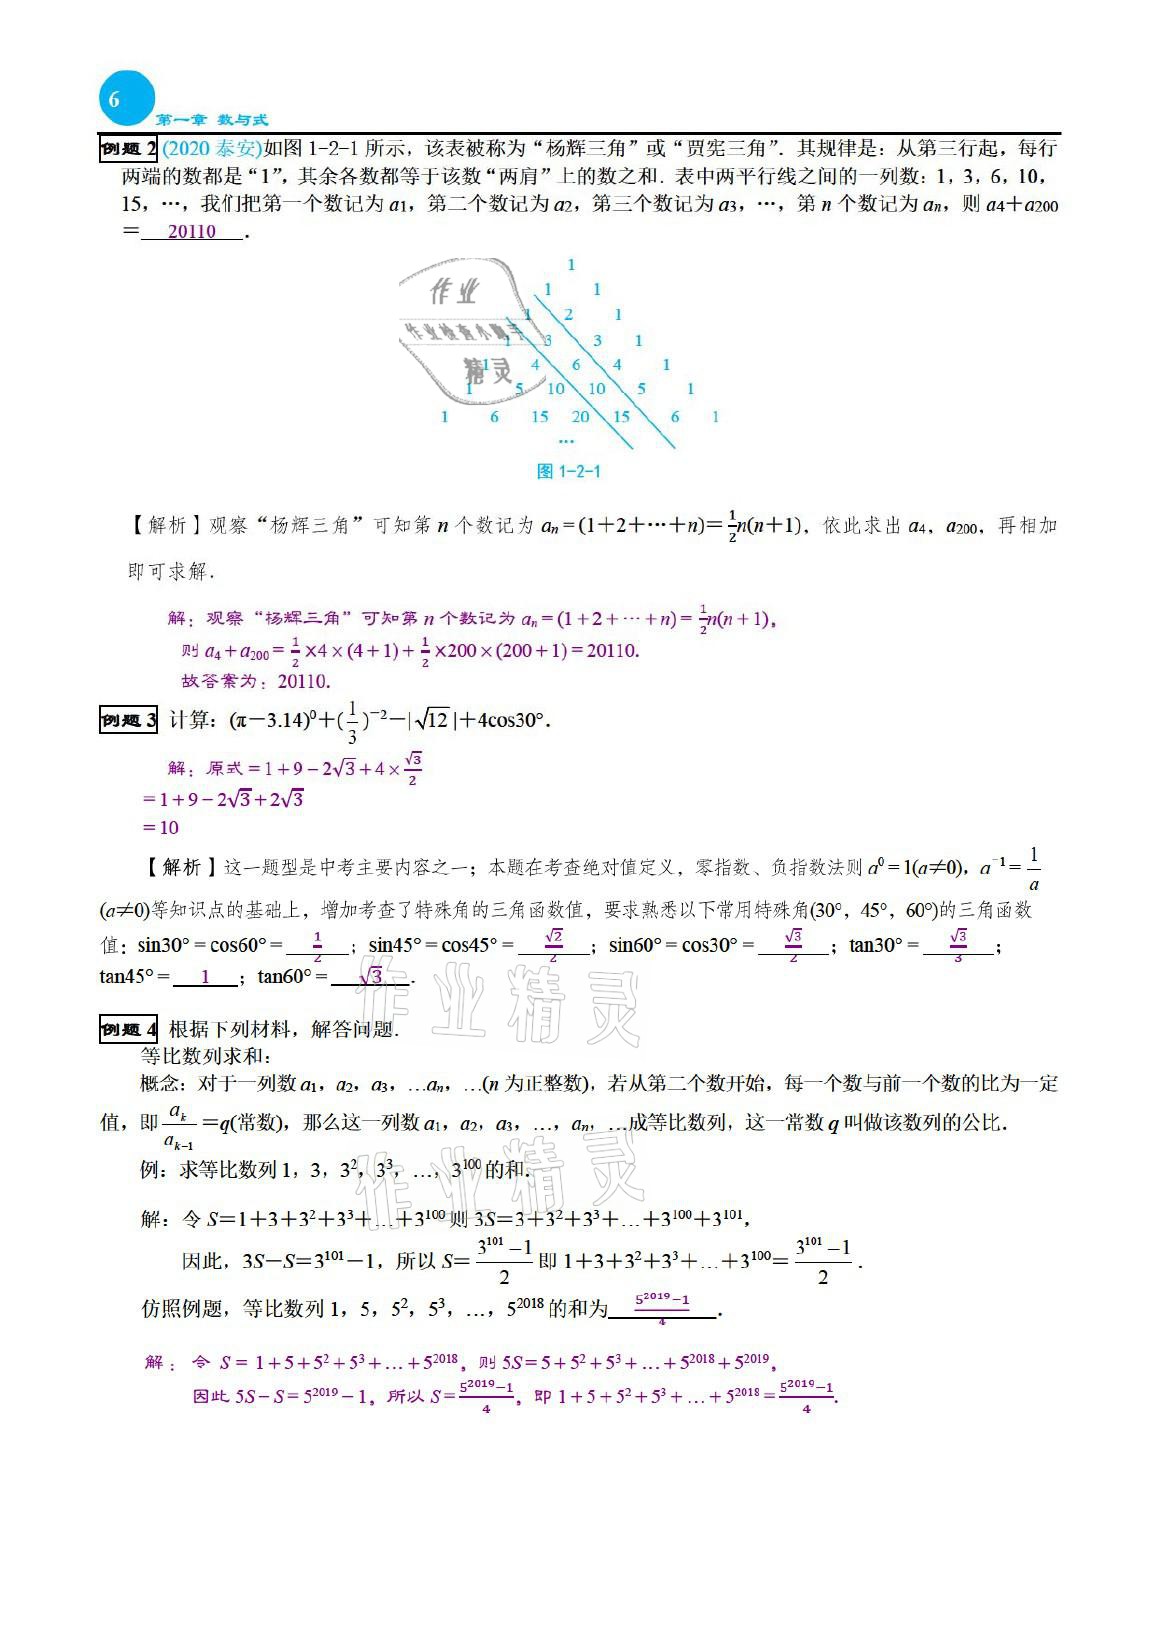 6
第一章 数与式
例题2 (2020 泰安)如图 1-2-1 所示，该表被称为“杨辉三角”或“贾宪三角”．其规律是：从第三行起，每行
两端的数都是“1”，其余各数都等于该数“两肩”上的数之和．表中两平行线之间的一列数：1，3，6，10，
15，…，我们把第一个数记为 a₁，第二个数记为 a₂，第三个数记为 a₃，…，第 n 个数记为 aₙ，则 a₄＋a₂₀₀
＝ 20110 ．
1
1 1
1 2 1
1 3 3 1
1 4 6 4 1
1 5 10 10 5 1
1 6 15 20 15 6 1
…
图 1-2-1
作业
作业检查小助手
精灵
【解析】观察“杨辉三角”可知第 n 个数记为 aₙ＝(1＋2＋…＋n)＝1/2n(n＋1)，依此求出 a₄，a₂₀₀，再相加
即可求解．
解：观察“杨辉三角”可知第 n 个数记为 aₙ＝(1＋2＋…＋n)＝1/2n(n＋1)，
则 a₄＋a₂₀₀＝1/2×4×(4＋1)＋1/2×200×(200＋1)＝20110.
故答案为：20110.
例题3 计算：(π－3.14)⁰＋(1/3)⁻²－|√12|＋4cos30°．
解：原式＝1＋9－2√3＋4×√3/2
＝1＋9－2√3＋2√3
＝10
【解析】这一题型是中考主要内容之一；本题在考查绝对值定义，零指数、负指数法则 a⁰＝1(a≠0)，a⁻¹＝1/a
(a≠0)等知识点的基础上，增加考查了特殊角的三角函数值，要求熟悉以下常用特殊角(30°，45°，60°)的三角函数
值：sin30°＝cos60°＝ 1/2 ；sin45°＝cos45°＝ √2/2 ；sin60°＝cos30°＝ √3/2 ；tan30°＝ √3/3 ；
tan45°＝ 1 ；tan60°＝ √3 ．
作业精灵
例题4 根据下列材料，解答问题．
等比数列求和：
概念：对于一列数 a₁，a₂，a₃，…aₙ，…(n 为正整数)，若从第二个数开始，每一个数与前一个数的比为一定
值，即 aₖ/aₖ₋₁＝q(常数)，那么这一列数 a₁，a₂，a₃，…，aₙ，…成等比数列，这一常数 q 叫做该数列的公比．
例：求等比数列 1，3，3²，3³，…，3¹⁰⁰ 的和．
作业精灵
解：令 S＝1＋3＋3²＋3³＋…＋3¹⁰⁰ 则 3S＝3＋3²＋3³＋…＋3¹⁰⁰＋3¹⁰¹，
因此，3S－S＝3¹⁰¹－1，所以 S＝(3¹⁰¹－1)/2 即 1＋3＋3²＋3³＋…＋3¹⁰⁰＝(3¹⁰¹－1)/2．
仿照例题，等比数列 1，5，5²，5³，…，5²⁰¹⁸ 的和为 (5²⁰¹⁹－1)/4 ．
解：令 S＝1＋5＋5²＋5³＋…＋5²⁰¹⁸，则 5S＝5＋5²＋5³＋…＋5²⁰¹⁸＋5²⁰¹⁹，
因此 5S－S＝5²⁰¹⁹－1，所以 S＝(5²⁰¹⁹－1)/4，即 1＋5＋5²＋5³＋…＋5²⁰¹⁸＝(5²⁰¹⁹－1)/4.